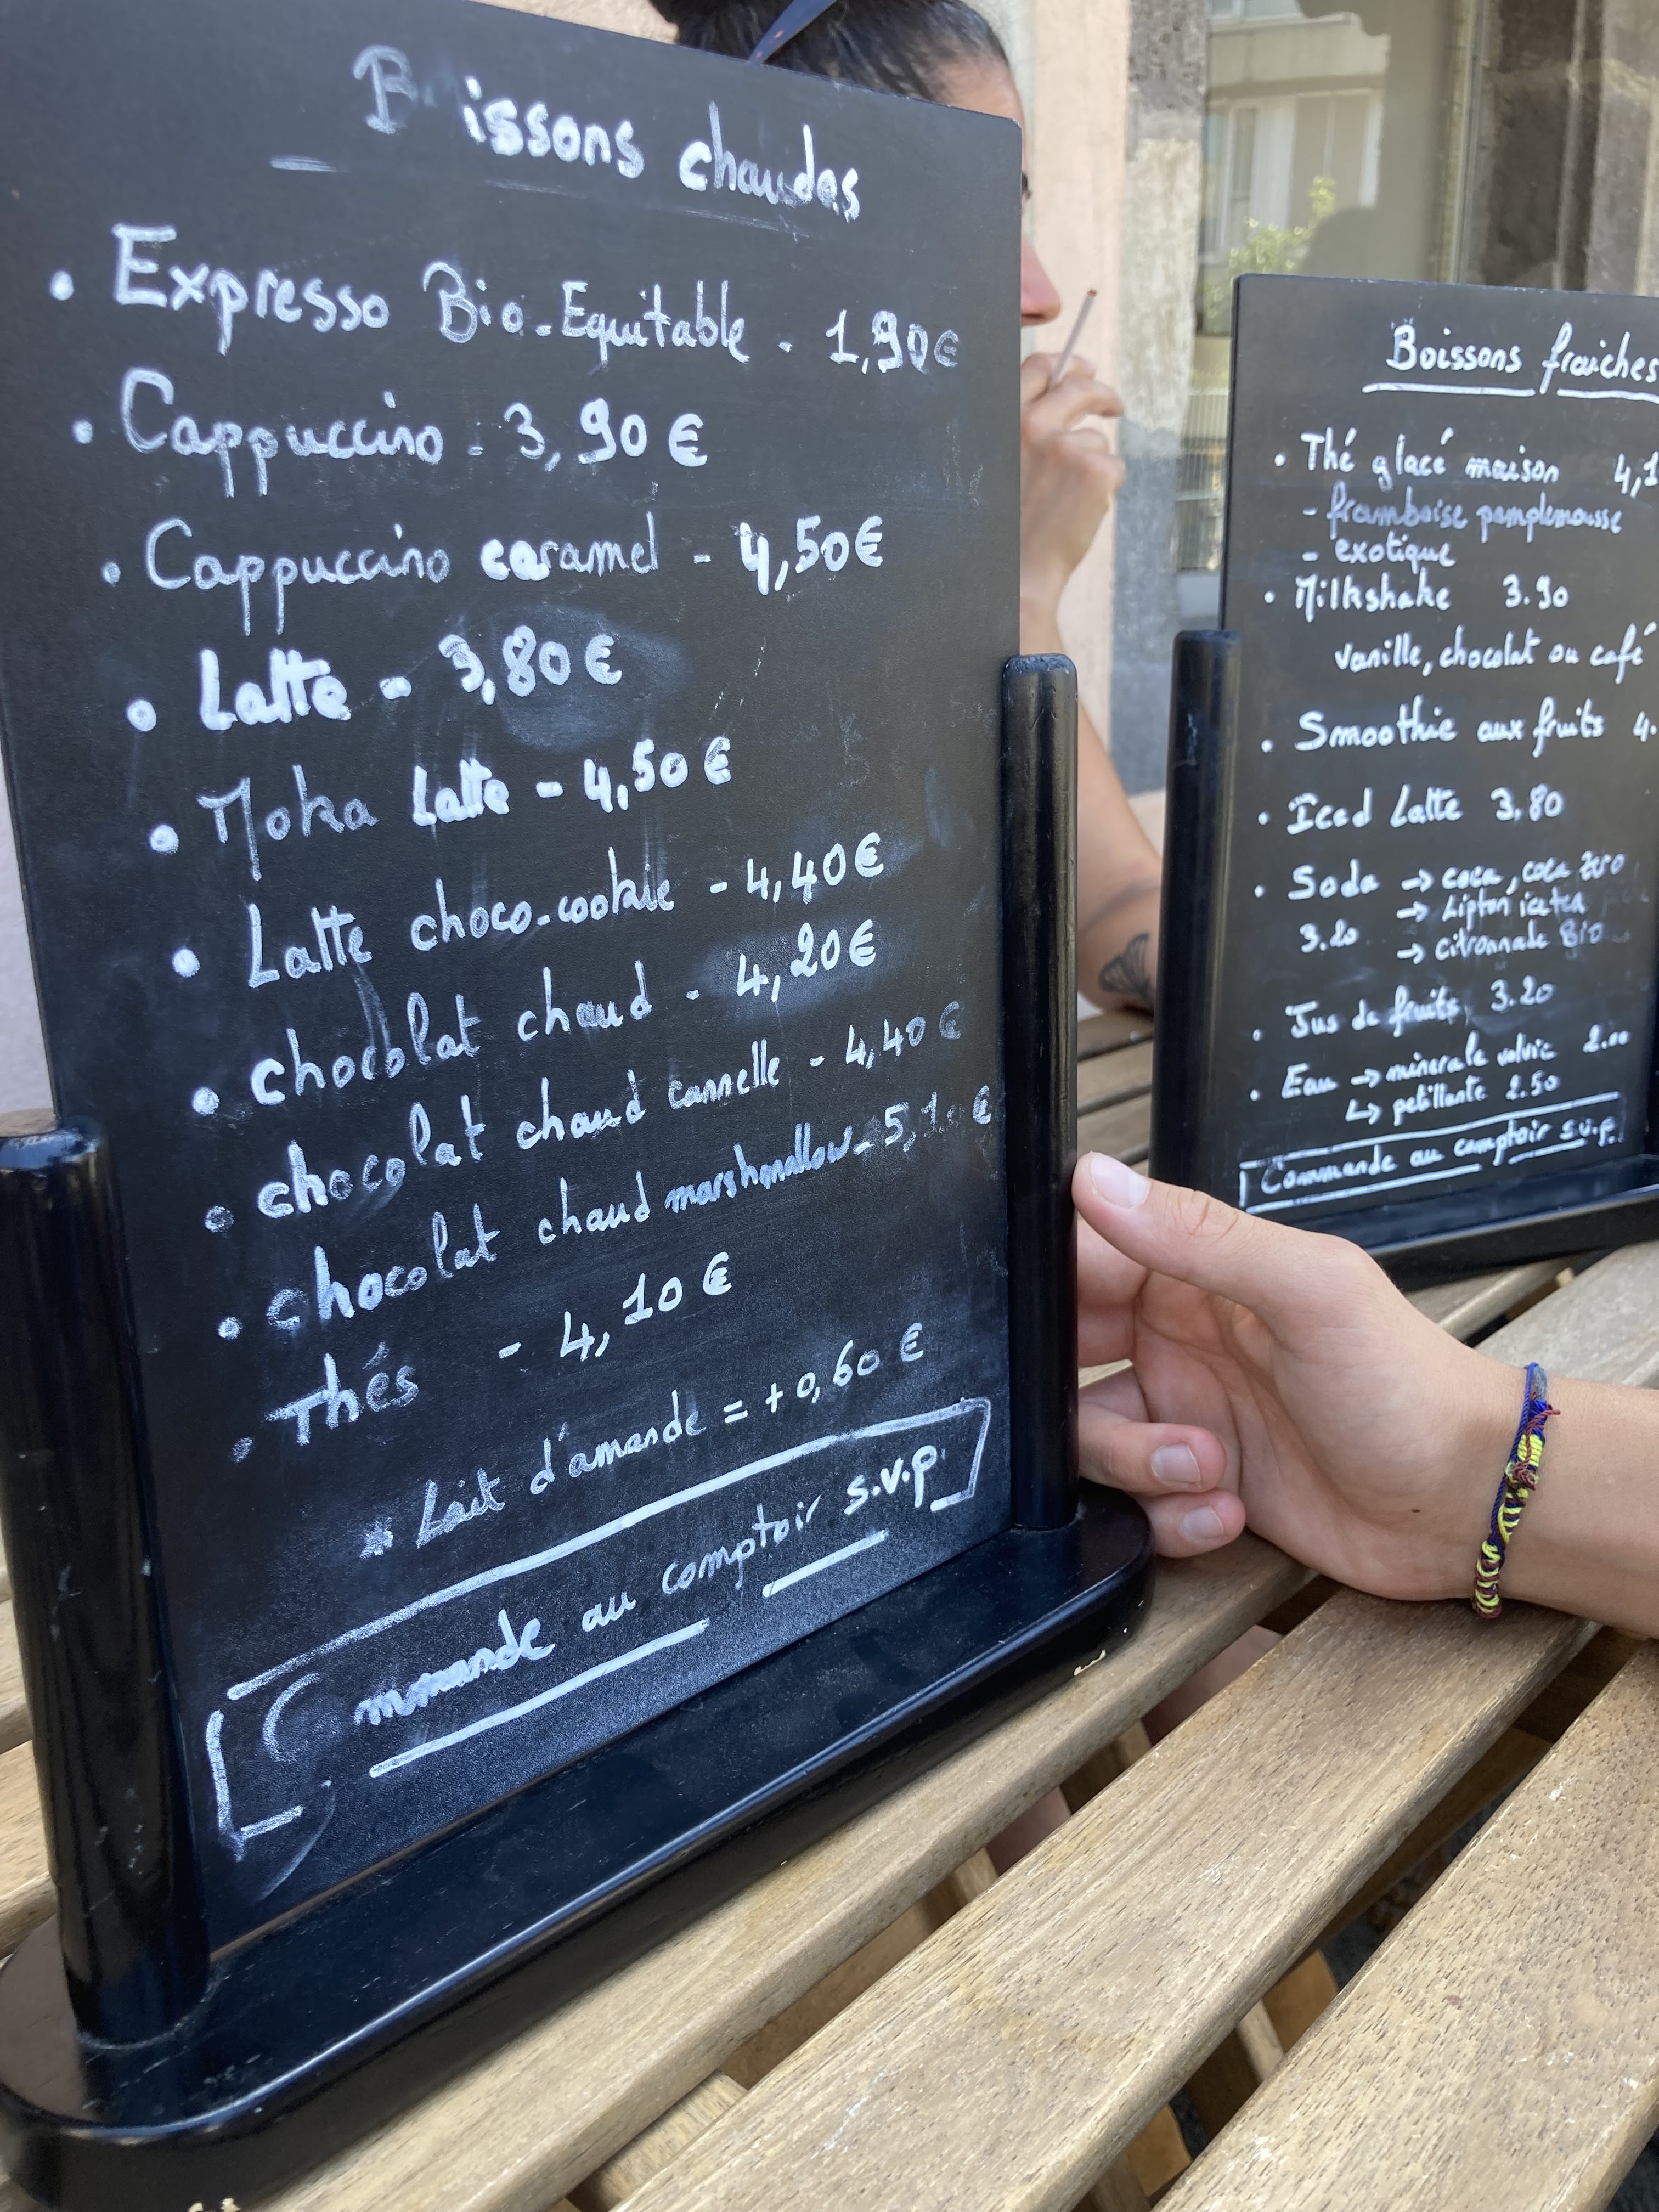 Boissons chaudes
• Expresso Bio-Equitable - 1,90€
• Cappuccino - 3,90€
• Cappuccino caramel - 4,50€
• Latte - 3,80€
• Moka Latte - 4,50€
• Latte choco-cookie - 4,40€
• chocolat chaud - 4,20€
• chocolat chaud cannelle - 4,40€
• chocolat chaud marshmallow - 5,1 €
• Thés - 4,10€
* Lait d'amande = + 0,60€
Commande au comptoir s.v.p.
Boissons fraiches
• Thé glacé maison 4,1
- framboise pamplemousse
- exotique
• Milkshake 3.90
vanille, chocolat ou café
• Smoothie aux fruits 4.
• Iced Latte 3.80
• Soda → coca, coca zero
→ Lipton ice tea
3.20 → citronnade Bio
• Jus de fruits 3.20
• Eau → minerale volvic 2.00
↳ petillante 2.50
Commande au comptoir s.v.p.